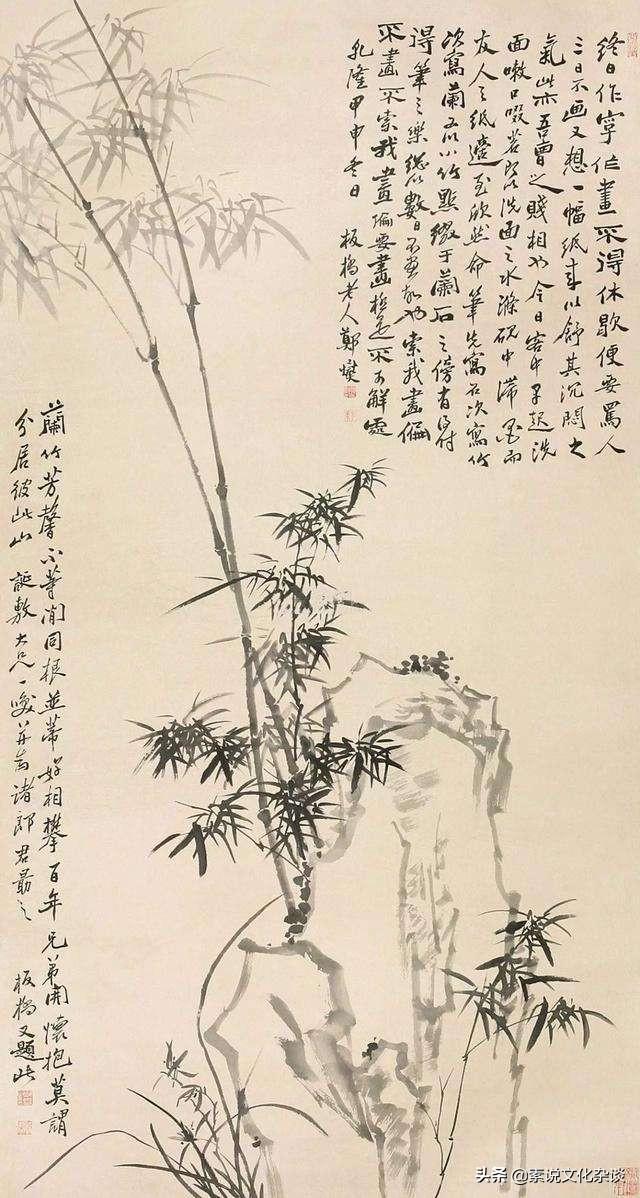 終日作字作畫不得休歇便要罵人
三日不画又想一幅紙來以舒其沉悶之
氣此亦吾曹之賤相也今日客中早起洗
面嗽口啜茗即以洗面之水滌硯中滯墨而
友人之紙適至欣然命筆先寫石次寫竹
次寫蘭又以小竹點綴于蘭石之傍
得筆之樂總以數日不画故也索我畫偏
不畫不索我畫偏要畫極是不可解處
乾隆甲申冬日 板橋老人鄭燮
蘭竹芳馨不等閒同根並蒂好相攀百年兄弟開懷抱莫謂
分居彼此山 誕敷大兄一咲并 諸郎君勗之 板橋又題此
头条 @素说文化杂谈